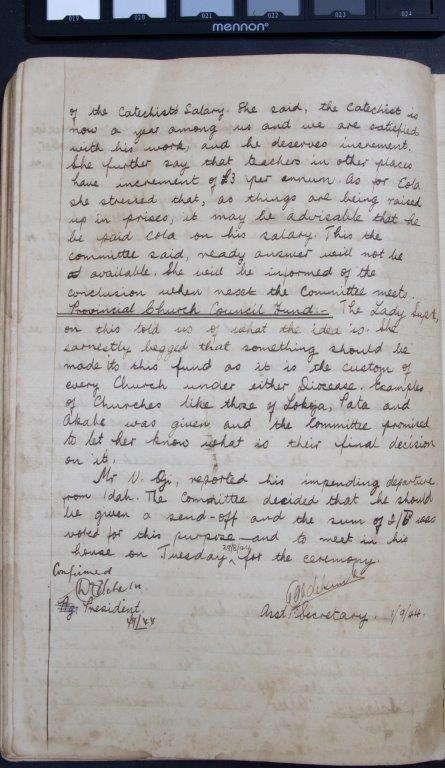 019 020 021 022 023 024
mennon®
of the Catechists Salary. She said, the Catechist is
now a year among us and we are satisfied
with his work, and he deserves increment.
She further say that teachers in other places
have increment of £3 per annum. As for Cola
she stressed that, as things are being raised
up in prices, it may be advisable that he
be paid Cola on his salary. This the
committee said, ready answer will not be
available. She will be informed of the
conclusion when next the Committee meets.
Provincial Church Council Fund:- The Lady Supt,
on this told us of what the idea is. She
earnestly begged that something should be
made to this fund as it is the custom of
every Church under either Diocese. Examples
of Churches like those of Lokoja, Pata and
Akabe was given and the Committee promised
to let her know what is their final decision
on it.
Mr N. Oji, reported his impending departure
from Idah. The Committee decided that he should
be given a send-off and the sum of 2/6 was
voted for this purpose and to meet in his
house on Tuesday 29/8/44 for the ceremony.
Confirmed
President.
Asst. Secretary. 1/9/44.